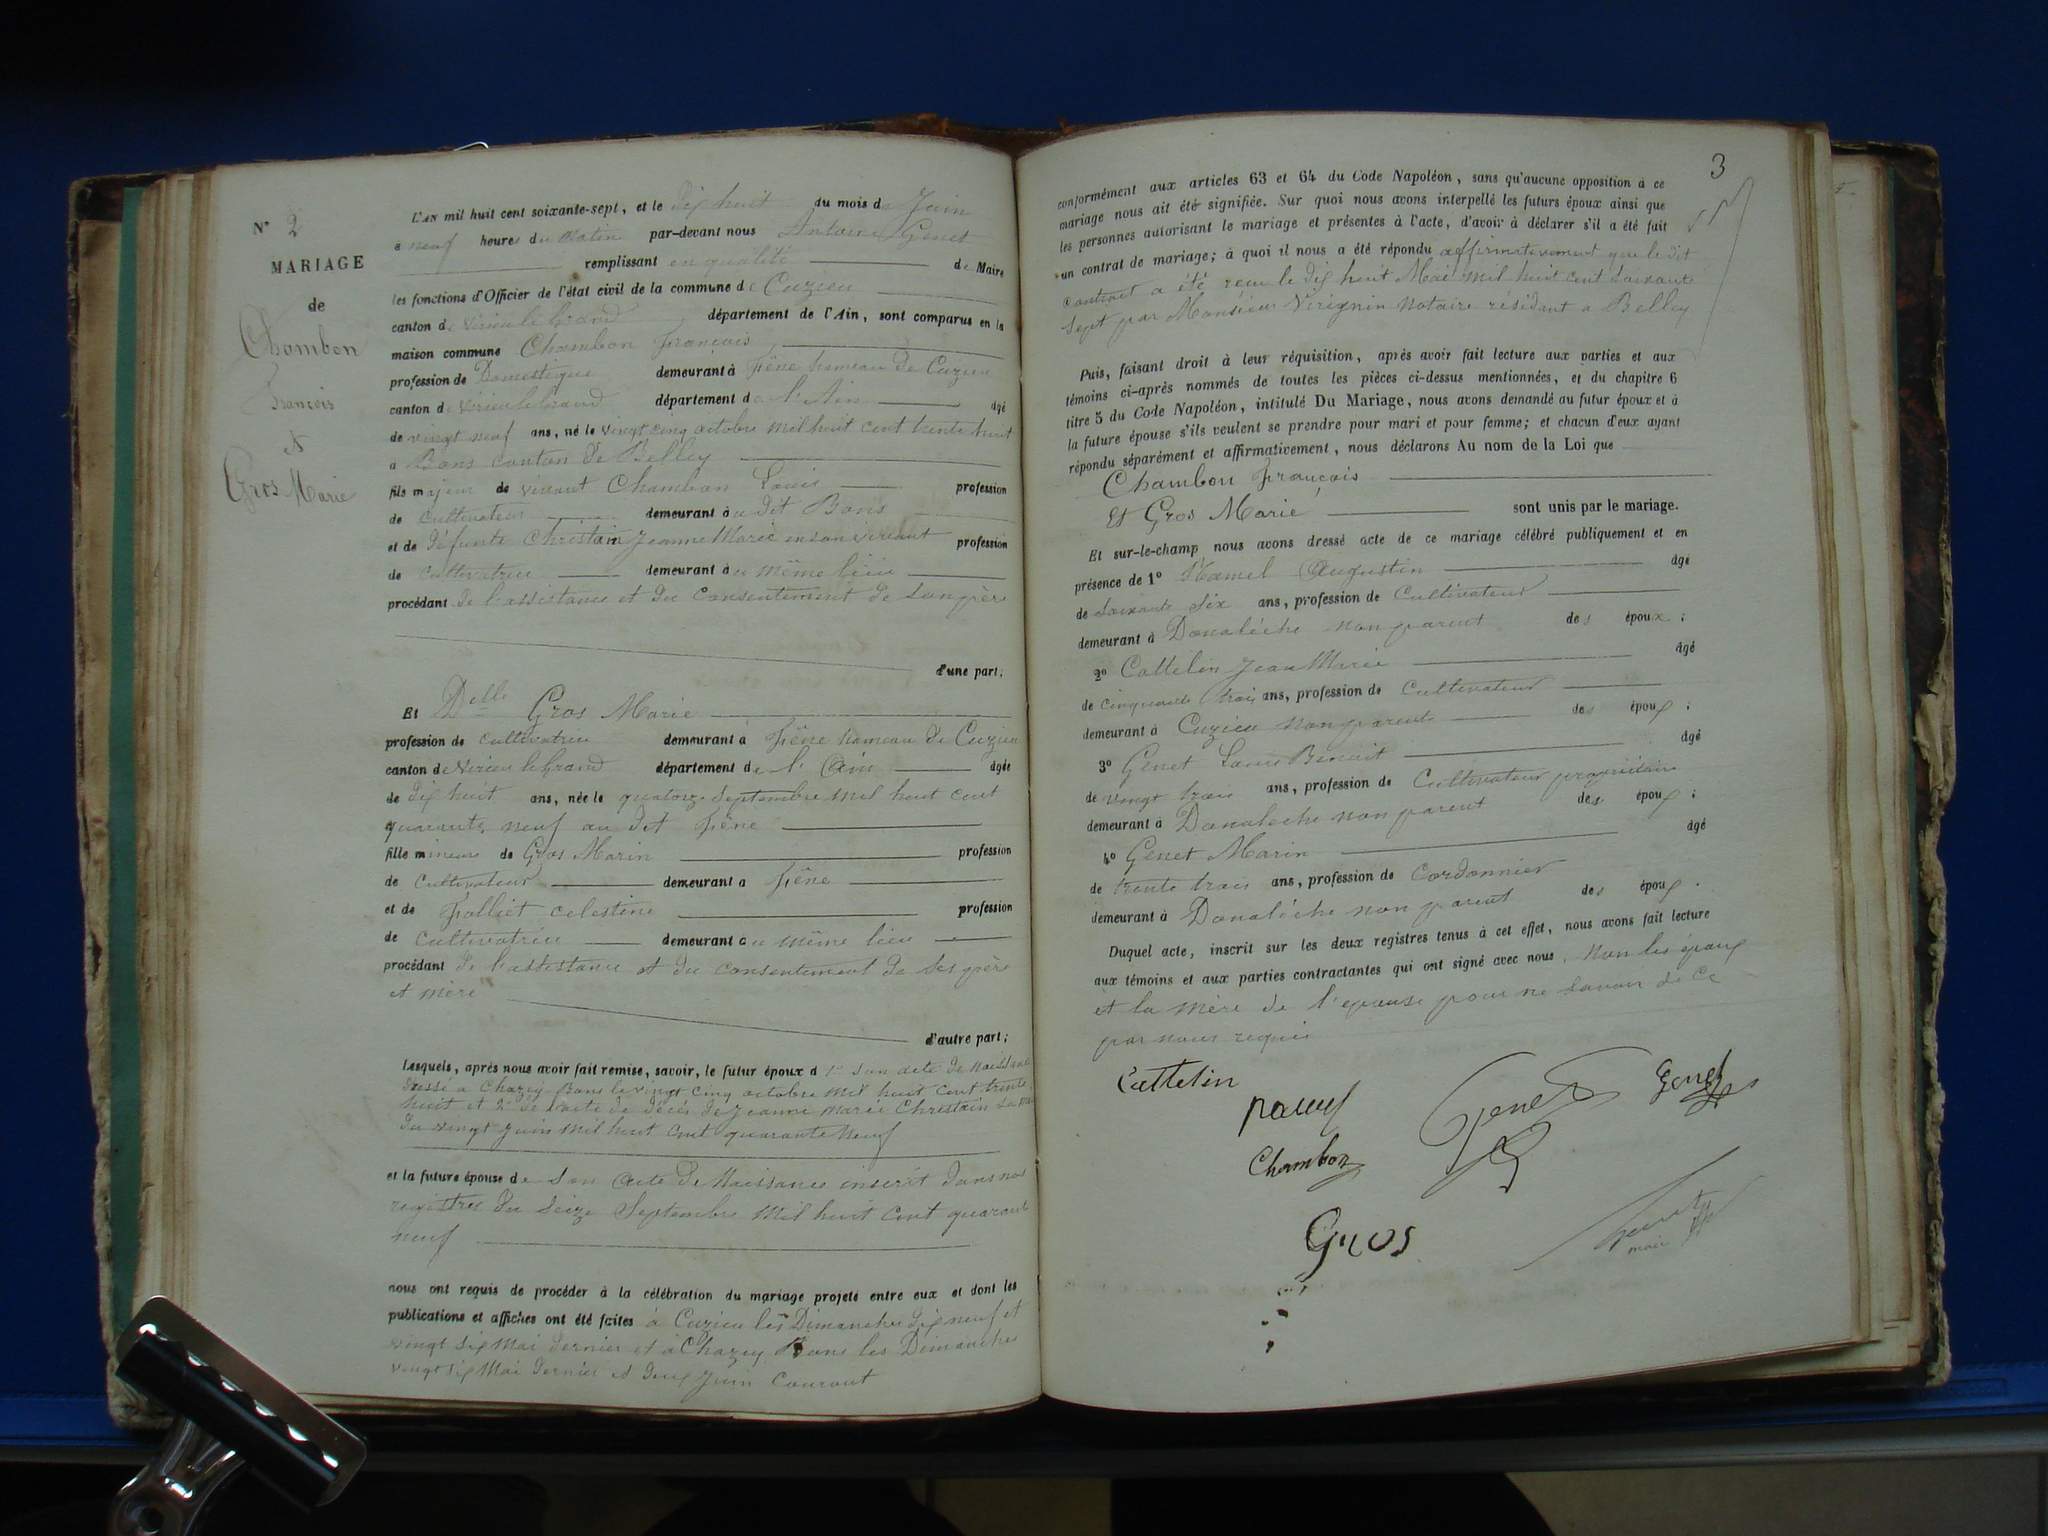 N° 2
MARIAGE
de
Chambon
François
et
Gros Marie
L'AN mil huit cent soixante-sept, et le dix huit du mois de Juin
à neuf heures du Matin par-devant nous Antoine Genet
remplissant en qualité de Maire
les fonctions d'Officier de l'état civil de la commune de Cuzieu
canton de Virieu le Grand département de l'Ain, sont comparus en la
maison commune Chambon François
profession de Domestique demeurant à hameau de Cuzieu
canton de Virieu le Grand département de l'Ain âgé
de vingt neuf ans, né le vingt cinq octobre mil huit cent trente huit
à Bons canton de Belley
fils majeur de vivant Chambon Louis profession
de Cultivateur demeurant au dit Bons
et de défunte Christain Jeanne Marie en son vivant profession
de cultivatrice demeurant au même lieu
procédant de l'assistance et du consentement de son père
d'une part;
Et Delle Gros Marie
profession de cultivatrice demeurant à hameau de Cuzieu
canton de Virieu le Grand département de l'Ain âgée
de dix huit ans, née le quatorze Septembre mil huit cent
quarante neuf au dit
fille mineure de Gros Marin profession
de Cultivateur demeurant à
et de celestine profession
de Cultivatrice demeurant au même lieu
procédant de l'assistance et du consentement de ses père
et mère
d'autre part;
Lesquels, après nous avoir fait remise, savoir, le futur époux d 1° son acte de Naissance
dressé a Chazey Bons le vingt cinq octobre mil huit cent trente
huit et 2° de l'acte de décès de Jeanne Marie Christain sa mère
du vingt Juin mil huit cent quarante neuf
et la future épouse de Son Acte de Naissance inscrit dans nos
registres du seize Septembre mil huit cent quarante
neuf
nous ont requis de procéder à la célébration du mariage projeté entre eux et dont les
publications et affiches ont été faites à Cuzieu les Dimanches dix neuf et
vingt six Mai dernier et à Chazey Bons les Dimanches
vingt six Mai dernier et deux Juin Courant
3
conformément aux articles 63 et 64 du Code Napoléon, sans qu'aucune opposition à ce
mariage nous ait été signifiée. Sur quoi nous avons interpellé les futurs époux ainsi que
les personnes autorisant le mariage et présentes à l'acte, d'avoir à déclarer s'il a été fait
un contrat de mariage; à quoi il nous a été répondu affirmativement que le dit
contract a été reçu le dix huit Mai mil huit cent soixante
sept par Monsieur Virignin Notaire résidant a Belley
Puis, faisant droit à leur réquisition, après avoir fait lecture aux parties et aux
témoins ci-après nommés de toutes les pièces ci-dessus mentionnées, et du chapitre 6
titre 5 du Code Napoléon, intitulé Du Mariage, nous avons demandé au futur époux et à
la future épouse s'ils veulent se prendre pour mari et pour femme; et chacun d'eux ayant
répondu séparément et affirmativement, nous déclarons Au nom de la Loi que
Chambon François
Et Gros Marie sont unis par le mariage.
Et sur-le-champ nous avons dressé acte de ce mariage célébré publiquement et en
présence de 1° Augustin âgé
de Soixante Six ans, profession de Cultivateur
demeurant à Donalèche non parent des époux;
2° Cattelin Jean Marie âgé
de cinquante trois ans, profession de Cultivateur
demeurant à Cuzieu non parent des époux;
3° Genet Louis Benoit âgé
de vingt trois ans, profession de Cultivateur propriétaire
demeurant à Donalèche non parent des époux;
4° Genet Marin âgé
de trente trois ans, profession de Cordonnier
demeurant à Donalèche non parent des époux.
Duquel acte, inscrit sur les deux registres tenus à cet effet, nous avons fait lecture
aux témoins et aux parties contractantes qui ont signé avec nous, Non les époux
et la mère de l'épouse pour ne savoir de ce
par nous requis
Cattelin
Genet
Genet
Chambon
Gros
maire